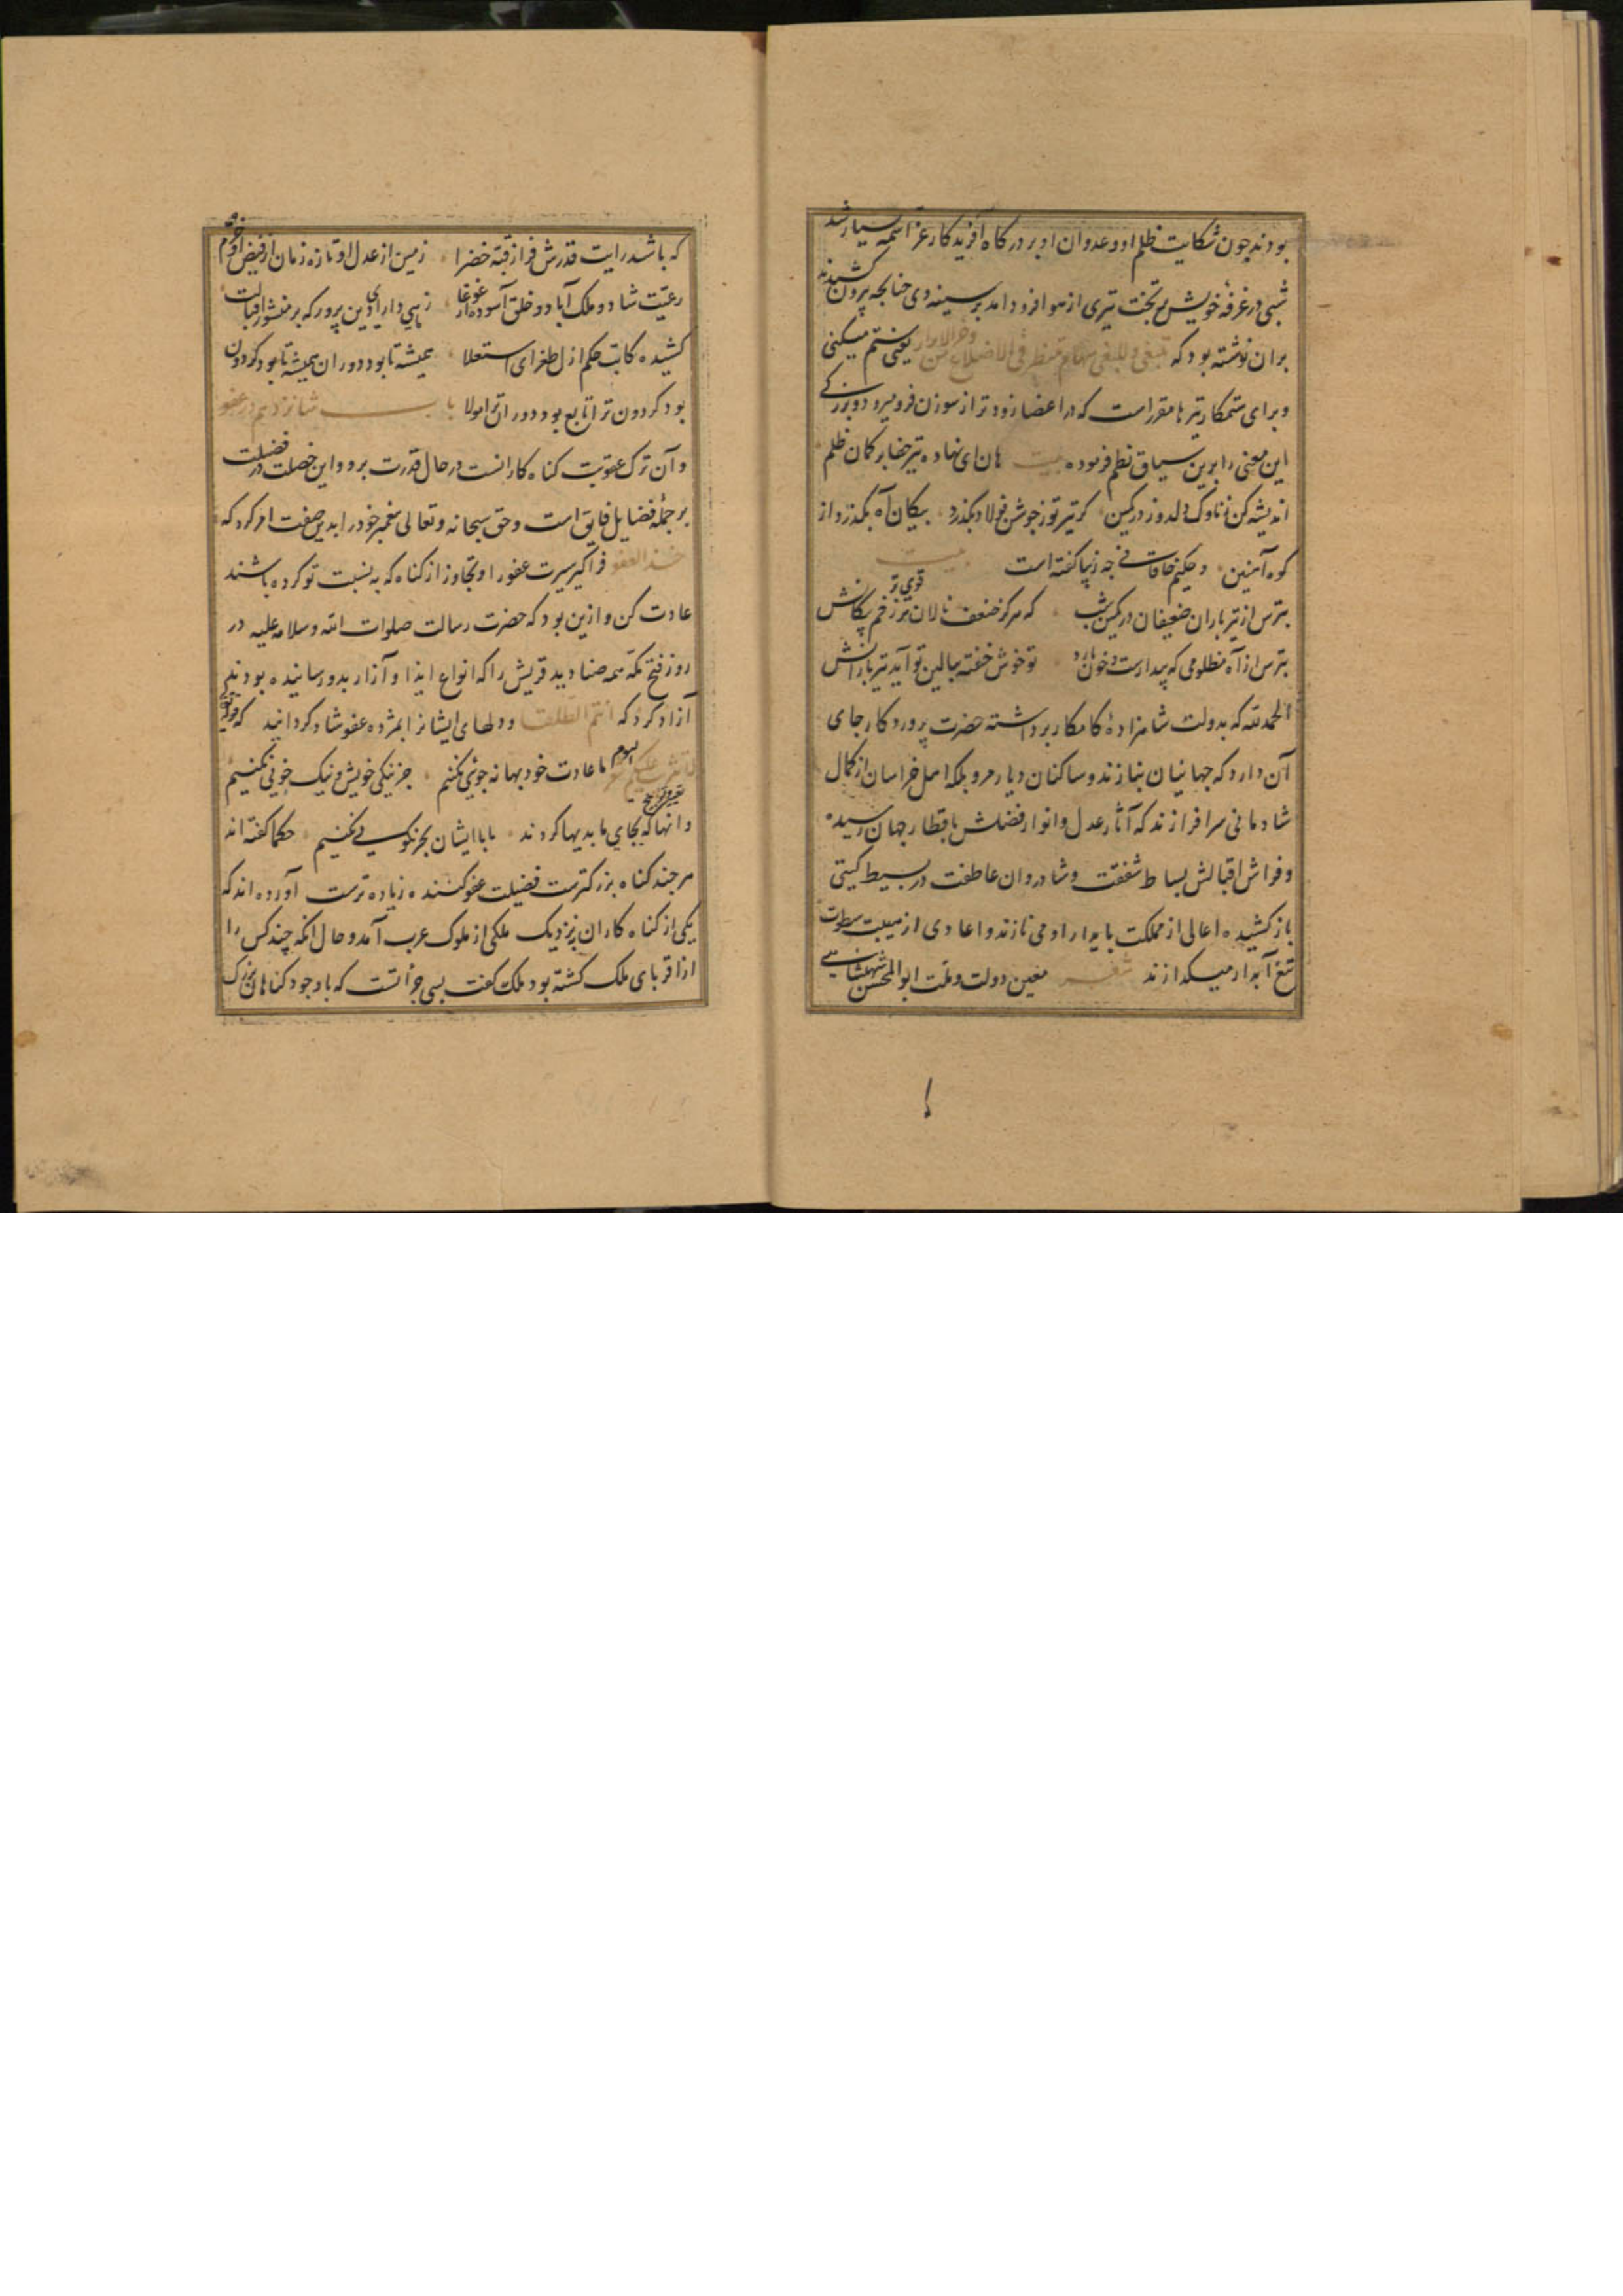 بودند چون شکایت ظلم او و عدوان او بر درگاه آفریدگار عز اسمه بسیار شد
شبی در غرفهٔ خویش بر تخت تیری از هوا فرود آمد بر سینه وی چنانچه بیرون کشیدند
بران نوشته بود که تبغی و للبغی سهام تنتظر یعنی ستم میکنی
و برای ستمکار تیرها مقرر است که در اعضا زودتر از سوزن فرو میرود و بزرکے
این معنی را برین سیاق نظم فرموده بیت هان ای نهاده تیر جفا بر کمان ظلم
اندیشه کن ز ناوک دلدوز در کمین کر تیر تو ز جوشن فولاد بگذرد پیکان آه بگذرد از
کوه آهنین و حکیم خاقانے چه زیبا کفته است بیت
بترس از تیرباران ضعیفان در کمین شب که هرکز ضعف نالان تر قوی تر زخم پیکانش
بترس از آه مظلومی که بیدارست و خون بارد تو خوش خفته ببالین تو آید تیر بارانش
الحمد لله که بدولت شاهزادهٔ کامکار برداشته حضرت پروردکار جای
آن دارد که جهانیان بنازند و ساکنان دیار مرو بلکه اهل خراسان از کمال
شادمانی سرافرازند که آثار عدل و انوار فضلش باقطار جهان رسیده
و فراش اقبالش بساط شفقت و شادروان عاطفت در بسیط کیتی
باز کشیده اعالی از مملکت پایدار او می نازند و اعادی از هیبت سطوت
تیغ آبدار میکدازند شعر معین دولت و ملت ابوالمحسن شهنشاهے
که باشد رایت قدرش فراز قبه خضرا زمین از عدل او تازه زمان از فیض او خرم
رعیت شاد و ملک آباد و خلق آسوده از غوغا زهی دارای دین پرور که بر منشور اقبالت
کشیده کاتب حکم ازل طغرای استعلا همیشه تا بود دوران همیشه تا بود کردون
بود کردون ترا تابع بود دوران ترا مولا باب شانزدهم در عفو
و آن ترک عقوبت کناه کارانست در حال قدرت برو و این خصلت در فضیلت
بر جملهٔ فضایل فایق است و حق سبحانه و تعالی پیغمبر خود را بدین صفت امر کرد که
خذ العفو فرا کیر سیرت عفو را و تجاوز از کناه که به نسبت تو کرده باشند
عادت کن و ازین بود که حضرت رسالت صلوات الله و سلامه علیه در
روز فتح مکه همه صنادید قریش را که انواع ایذا و آزار بدو رسانیده بودند
آزاد کرد که انتم الطلقا و دلهای ایشانرا بمژده عفو شاد کردانید که
لا تثریب علیکم الیوم ما عادت خود بهانه جویی نکنیم جز نیکی خویش و نیک خویی نکنیم
و آنها که بجای ما بدیها کردند با ایشان بجز نکویی نکنیم حکما کفته اند
هرچند کناه بزرکترست فضیلت عفو کننده زیاده ترست آورده اند که
یکی از کناه کاران بنزدیک ملکی از ملوک عرب آمد و حال آنکه چند کس را
از اقربای ملک کشته بود ملک کفت بسی جرأتست که با وجود کناهان بزرک